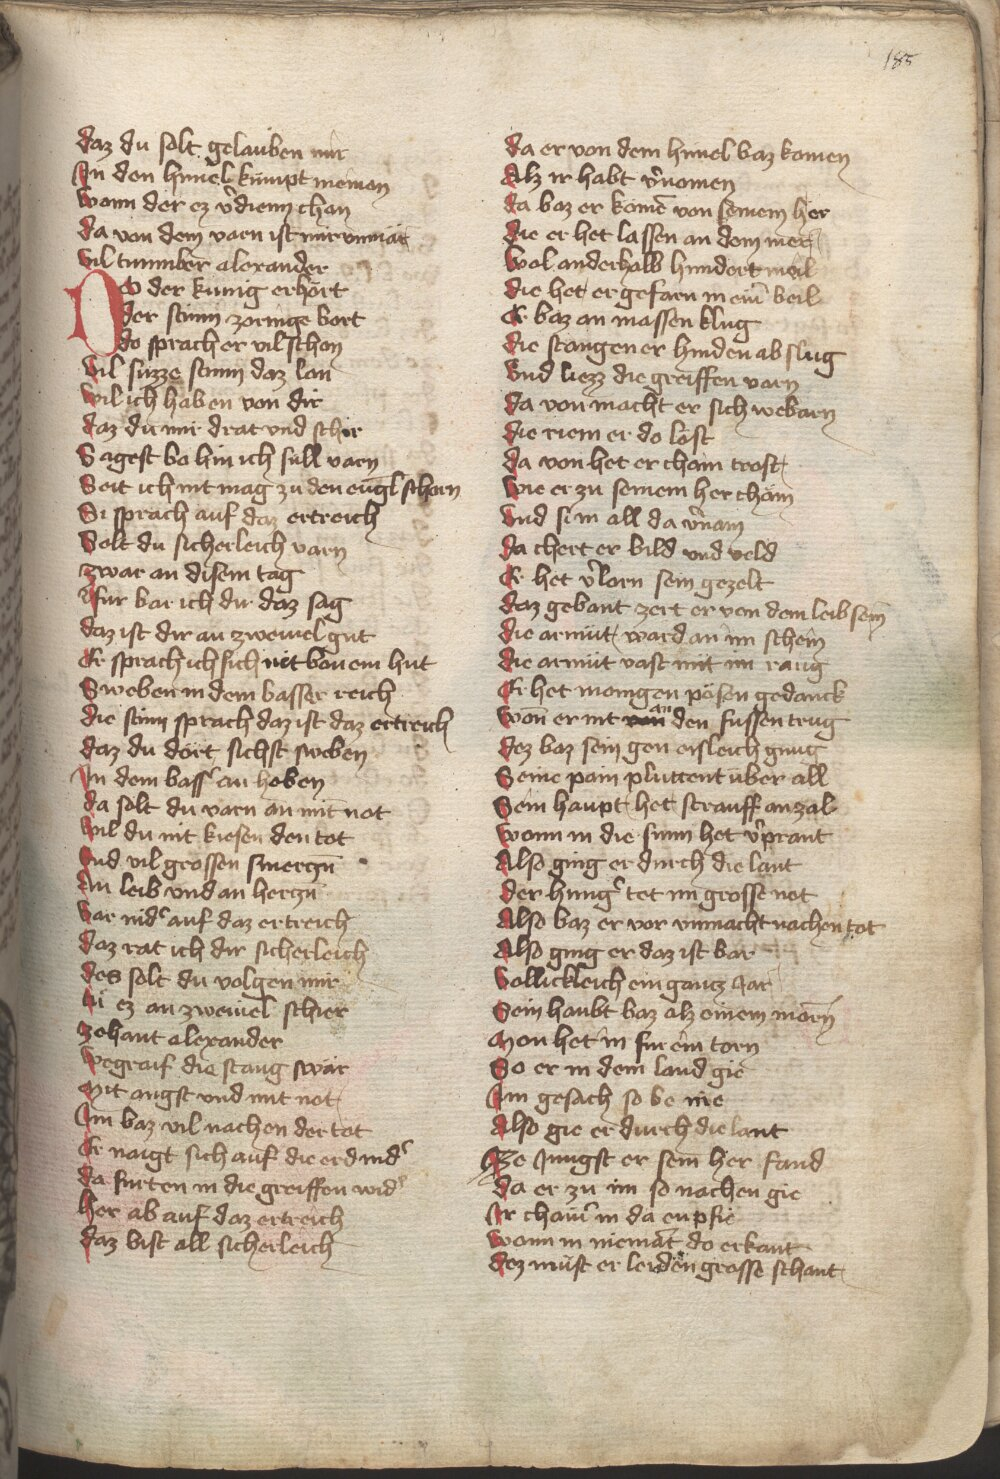 185
daz du solt gelauben mir
In den himel kumpt nieman
wann der ez v̾dienn chan
da von dem varn ist mir unmär
vil tummber alexander
Do der kunig erhort
der stimm zoringe bort
do sprach er vil schon
vil suzze stimm daz lon
wil ich haben von dir
daz du mir drat vnd schir
Sagest bo hin ich sull varn
Seit ich nit mag zu den eugl scharn
Si sprach auf daz ertreich
Solt du sicherleich varn
zwar an disem tag
fur bar ich dir daz sag
daz ist dir an zweiuel gut
Er sprach ich sich nit bon em hut
Sweben in dem basser reich
die stim sprach daz ist daz ertreich
daz du dort sichst sweben
In dem bass̾ an heben
da solt du varn an mit not
wil du nit kiesen den tot
vnd vil grossen smerczn̄
An leib vnd an herczn̄
var nid̾ auf daz ertreich
daz rat ich dir sicherleich
des solt du volgen mir
tu ez an zweiuel schier
zehant alexander
begraif die stang swär
Mit angst vnd mit not
Im baz vil nachen der tot
Er naigt sich auf die erd nid̾
da furten in die greiffen wid̾
her ab auf daz ertreich
daz bist all sicherleich
da er von dem himel baz komen
Alz ir habt v̾nomen
da baz er komē von seinem her
die er het lassen an dem mer
wol anderhalb hundert meil
die het er gefarn in eim̄ beil
Er baz an massen klug
die stangen er hinden ab slug
vnd liezz die greiffen varn
da von macht er sich webarn
die riem er do lost
da von het er chain trost
wie er zu seinem her chäm
vnd si in all da v̾näm
da chert er bild vnd veld
Er het v̾lorn sein gezelt
daz gebant zert er von dem leib sein
die armüt ward an im schein
die armüt vast mit im rang
Er het manigen pösen gedanck
Won̄ er nit an den fussen trug
dez baz sein gen eisleich gnug
Seine pain pluttent über all
Sein haupt het strauff an zal
wann in die sunn het v̾prant
Also ging er durch die lant
der hung̾ tet im grosse not
Also baz er vor vnmacht nachen tot
Also ging er daz ist bar
vollickleich ein gancz Jar
Sein haubt baz alz einem morn̄
Man het in fur ein torn
So er in dem land gie
Im gesach so be nie
Also gie er durch die lant
Ze Jungst er sein her fand
da er zu im so nachen gie
Ir chain̄ in da enpfie
wann in niemāt do erkant
dez müst er leiden grosse schant